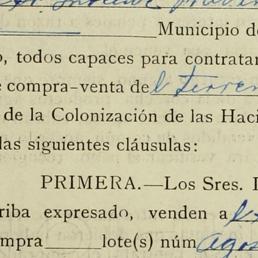 Municipio de
o, todos capaces para contratar
e compra-venta del terren
de la Colonización de las Haci
las siguientes cláusulas:
PRIMERA.—Los Sres. I
riba expresado, venden a
ompra lote(s) núm